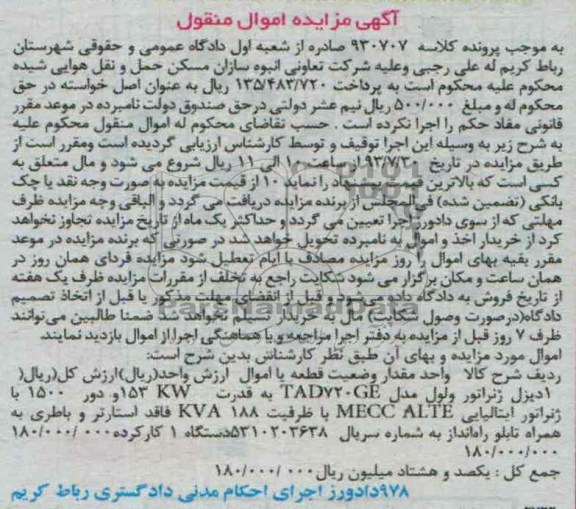 آگهی مزایده اموال منقول
به موجب پرونده کلاسه ۹۳۰۷۰۷ صادره از شعبه اول دادگاه عمومی و حقوقی شهرستان
رباط کریم له علی رجبی وعلیه شرکت تعاونی انبوه سازان مسکن حمل و نقل هوایی شیده
محکوم علیه محکوم است به پرداخت ۱۳۵/۴۸۳/۷۲۰ ریال به عنوان اصل خواسته در حق
محکوم له و مبلغ ۵۰۰/۰۰۰ ریال نیم عشر دولتی درحق صندوق دولت نامبرده در موعد مقرر
قانونی مفاد حکم را اجرا نکرده است . حسب تقاضای محکوم له اموال منقول محکوم علیه
به شرح زیر به وسیله این اجرا توقیف و توسط کارشناس ارزیابی گردیده است ومقرر است از
طریق مزایده در تاریخ ۹۳/۷/۳۰ از ساعت ۱۰ الی ۱۱ ریال شروع می شود و مال متعلق به
کسی است که بالاترین قیمت پیشنهاد را نماید ۱۰ از قیمت مزایده به صورت وجه نقد یا چک
بانکی (تضمین شده) فی المجلس از برنده مزایده دریافت می گردد و الباقی وجه مزایده ظرف
مهلتی که از سوی دادورز اجرا تعیین می گردد و حداکثر یک ماه از تاریخ مزایده تجاوز نخواهد
کرد از خریدار اخذ و اموال به نامبرده تحویل خواهد شد در صورتی که برنده مزایده در موعد
مقرر بقیه بهای اموال را روز مزایده مصادف با ایام تعطیل شود مزایده فردای همان روز در
همان ساعت و مکان برگزار می شود شکایت راجع به تخلف از مقررات مزایده ظرف یک هفته
از تاریخ فروش به دادگاه داده می شود و قبل از انقضای مهلت مذکور یا قبل از اتخاذ تصمیم
دادگاه(درصورت وصول شکایت) مال به خریدار تسلیم نخواهد شد ضمنا طالبین می توانند
ظرف ۷ روز قبل از مزایده به دفتر اجرا مراجعه و با هماهنگی اجرا از اموال بازدید نمایند
اموال مورد مزایده و بهای آن طبق نظر کارشناس بدین شرح است:
ردیف شرح کالا واحد مقدار وضعیت قطعه یا اموال ارزش واحد(ریال)ارزش کل(ریال(
۱دیزل ژنراتور ولول مدل TAD۷۲۰GE به قدرت ۱۵۳ KWو دور ۱۵۰۰ با
ژنراتور ایتالیایی MECC ALTE با ظرفیت ۱۸۸ KVA فاقد استارتر و باطری به
همراه تابلو راه‌انداز به شماره سریال ۵۳۱۰۲۰۳۶۳۸دستگاه ۱ کارکرده۱۸۰/۰۰۰/۰۰۰
۱۸۰/۰۰۰/۰۰۰
جمع کل : یکصد و هشتاد میلیون ریال۱۸۰/۰۰۰/۰۰۰
۹۷۸دادورز اجرای احکام مدنی دادگستری رباط کریم